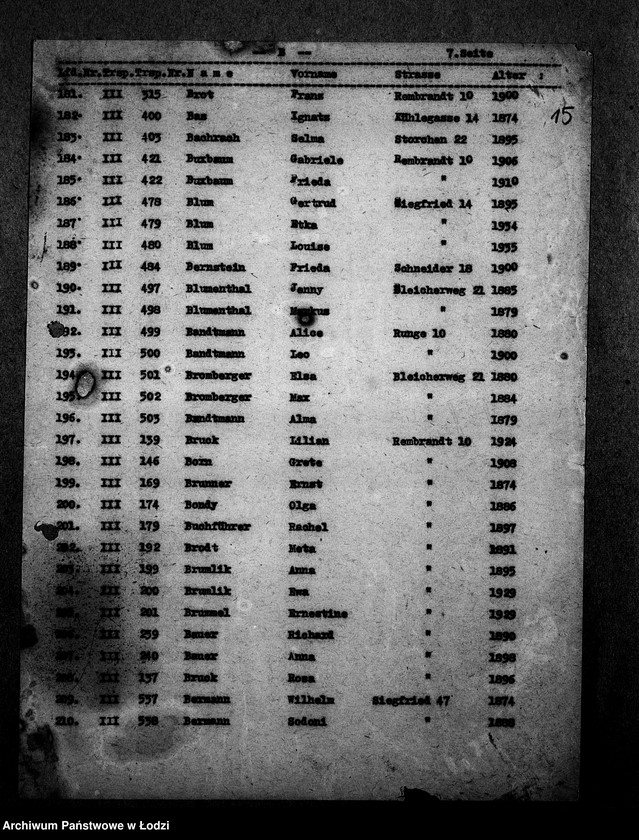 — B — 7.Seite
Lfd.Nr.Trsp.Trsp.Nr.N a m e Vorname Strasse Alter :
181. III 315 Brot Franz Rembrandt 10 1900
15
182. III 400 Bas Ignatz Mühlegasse 14 1874
183. III 403 Bachrach Selma Storchen 22 1895
184. III 421 Buxbaum Gabriele Rembrandt 10 1906
185. III 422 Buxbaum Frieda " 1910
186. III 478 Blum Gertrud Siegfried 14 1895
187. III 479 Blum Etka " 1934
188. III 480 Blum Louise " 1935
189. III 484 Bernstein Frieda Schneider 18 1900
190. III 497 Blumenthal Jenny Bleicherweg 21 1885
191. III 498 Blumenthal " 1879
192. III 499 Bandtmann Alice Runge 10 1880
193. III 500 Bandtmann Leo " 1900
194. III 501 Bromberger Elsa Bleicherweg 21 1880
195. III 502 Bromberger Max " 1884
196. III 503 Bandtmann Alma " 1879
197. III 139 Bruck Lilian Rembrandt 10 1924
198. III 146 Born Grete " 1908
199. III 169 Brunner Ernst " 1874
200. III 174 Bondy Olga " 1886
201. III 179 Buchführer Rachel " 1897
202. III 192 Brodt Meta " 1891
203. III 199 Brumlik Anna " 1895
204. III 200 Brumlik Ewa " 1929
205. III 201 Brummel Ernestine " 1929
206. III 239 Bauer Richard " 1890
207. III 240 Bauer Anna " 1898
208. III 137 Bruck Rosa " 1896
209. III 537 Bermann Wilhelm Siegfried 47 1874
210. III 538 Bermann Sodoni "
Archiwum Państwowe w Łodzi